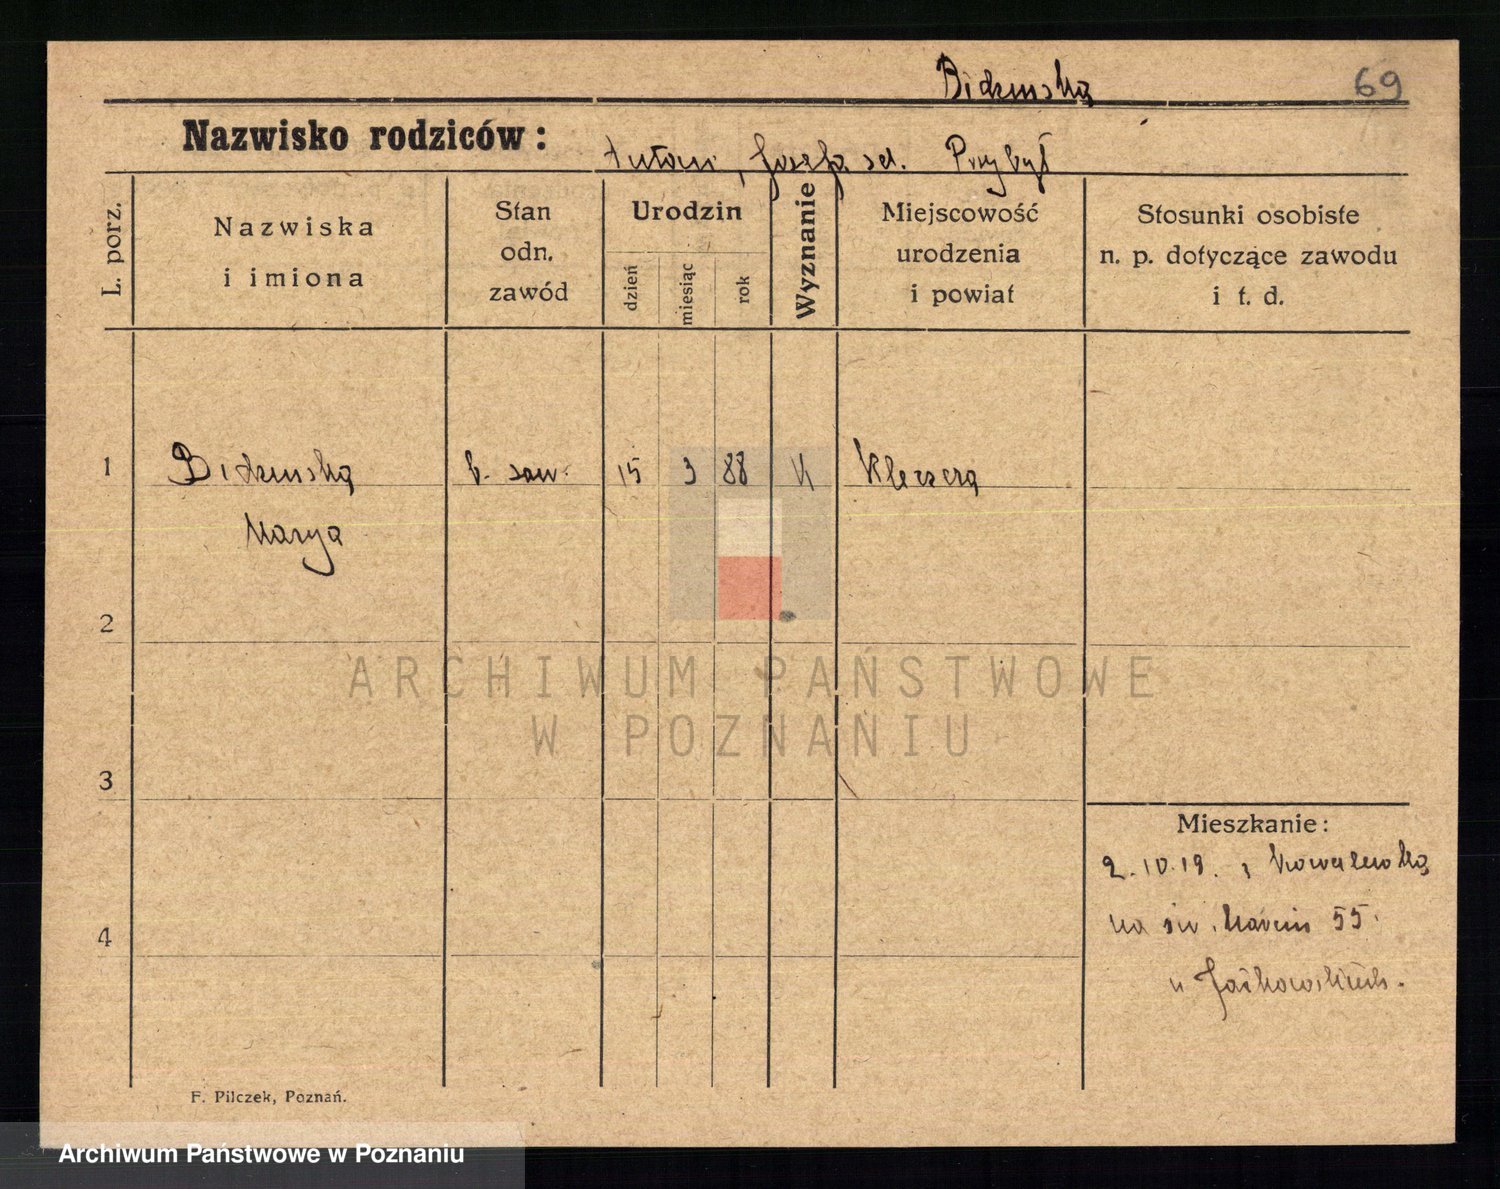 Bidzinska
69
Nazwisko rodziców:
Antoni, Józefa sd. Przybył
L. porz.
Nazwiska
i imiona
Stan
odn.
zawód
Urodzin
dzień
miesiąc
rok
Wyznanie
Miejscowość
urodzenia
i powiat
Stosunki osobiste
n. p. dotyczące zawodu
i t. d.
1
Bidzinska
b. zaw.
15
3
88
K
Kleszcza
Marya
2
ARCHIWUM PAŃSTWOWE
W POZNANIU
3
Mieszkanie:
2.10.19. z Kowalewka
na św. Marcin 55.
u Jaśkowskich.
4
F. Pilczek, Poznań.
Archiwum Państwowe w Poznaniu